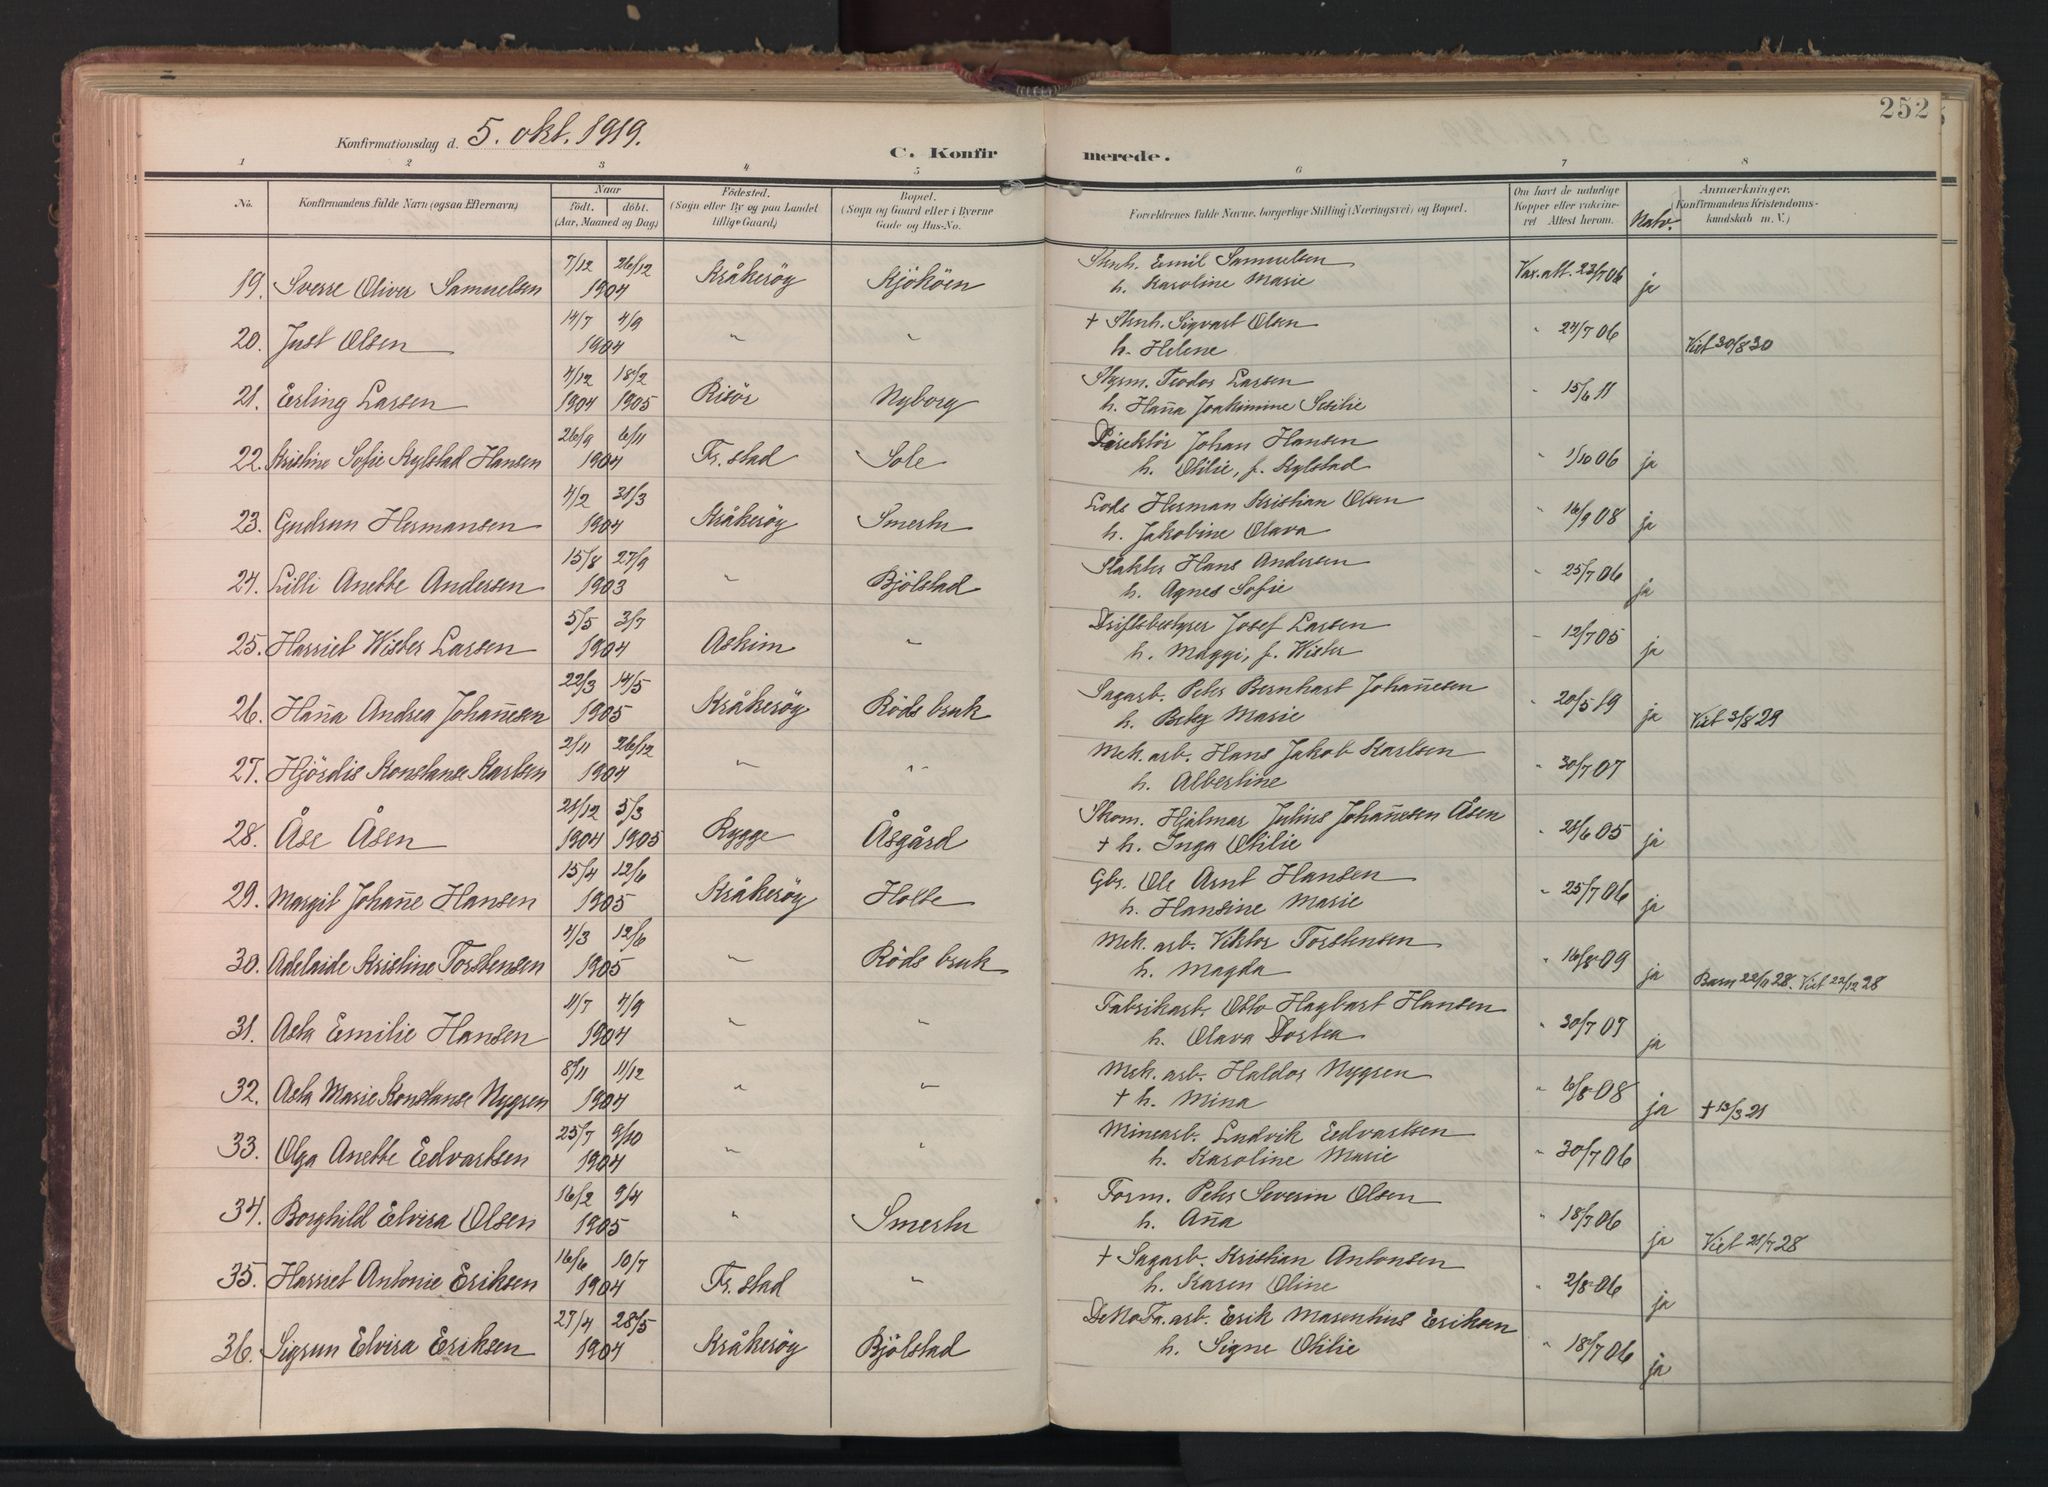 252
Konfirmationsdag d. 5. okt. 1919.
C. Konfirmerede.
1 2 3 4 5 6 7 8
No. Konfirmandens fulde Navn (ogsaa Efternavn) Naar født. døbt. (Aar, Maaned og Dag) Fødested. (Sogn eller By og paa Landet tillige Gaard) Bopæl. (Sogn og Gaard eller i Byerne Gade og Hus-No. Forældrenes fulde Navne, borgerlige Stilling (Næringsvei) og Bopæl. Om havt de naturlige Kopper eller vaksineret Attest herom. Natv. Anmærkninger. (Konfirmandens Kristendomskundskab m. V.)
19. Sverre Oliver Samuelsen 7/12 26/12 1904 Kråkeröy Kjököen Sknh. Emil Samuelsen h. Karoline Marie Vax. att. 23/7 06 ja
20. Just Olsen 14/7 4/9 1904 " " + Sknh. Sigvart Olsen h. Helene " 24/7 06 Viet 30/8 30
21. Erling Larsen 4/12 1904 18/2 1905 Risör Nyborg Styrm. Teodor Larsen h. Han̄a Joakimine Sesilie " 15/6 11
22. Kristine Sofie Kylstad Hansen 26/9 6/11 1904 Fr.stad Sole Direktör Johan Hansen h. Otilie, f. Kylstad " 1/10 06 ja
23. Gudrun Hermansen 4/2 31/3 1904 Kråkeröy Smertu Lods Herman Kristian Olsen h. Jakobine Olava " 16/9 08 ja
24. Lilli Anette Andersen 15/8 27/9 1903 " Bjölstad Slakter Hans Andersen h. Agnes Sofie " 25/7 06 ja
25. Harriet Wister Larsen 5/5 3/7 1904 Askim " Driftsbestyrer Josef Larsen h. Maggi, f. Wister " 12/7 05 ja
26. Han̄a Andrea Johan̄esen 22/3 14/5 1905 Kråkeröy Röds bruk Sagarb. Peter Bernhart Johan̄esen h. Betzy Marie " 20/5 19 ja Viet 3/8 29
27. Hjördis Konstanse Karlsen 2/11 26/12 1904 " " Mek. arb. Hans Jakob Karlsen h. Albertine " 30/7 07
28. Åse Åsen 21/12 1904 5/3 1905 Rygge Åsgård Skom. Hjalmar Julius Johan̄esen Åsen + h. Inga Otilie " 21/6 05 ja
29. Margit Johan̄e Hansen 15/4 12/6 1905 Kråkeröy Holte Gbr. Ole Arnt Hansen h. Hansine Marie " 25/7 06 ja
30. Adelaide Kristine Torstensen 4/3 12/6 1905 " Röds bruk Mek. arb. Viktor Torstensen h. Magda " 16/8 09 ja Barn 22/9 28. Viet 22/12 28
31. Asta Emilie Hansen 11/7 4/9 1904 " " Fabrikarb. Otto Hagbart Hansen h. Olava Dortea " 30/7 07 ja
32. Asta Marie Konstanse Nygren 8/11 11/12 1904 " " Mek. arb. Haldor Nygren + h. Mina " 6/8 08 ja + 13/3 21
33. Olga Anette Edvartsen 25/7 9/10 1904 " " Minearb. Ludvik Edvartsen h. Karoline Marie " 30/7 06
34. Borghild Elvira Olsen 16/2 9/4 1905 " Smertu Form. Peter Severin Olsen h. An̄a " 18/7 06 ja Viet 21/7 28
35. Harriet Antonie Eriksen 16/6 10/7 1904 Fr.stad " + Sagarb. Kristian Antonsen h. Karen Oline " 2/8 06 ja
36. Sigrun Elvira Eriksen 27/4 28/5 1904 Kråkeröy Bjölstad DeNoFa. arb. Erik Masentius Eriksen h. Signe Otilie " 18/7 06 ja